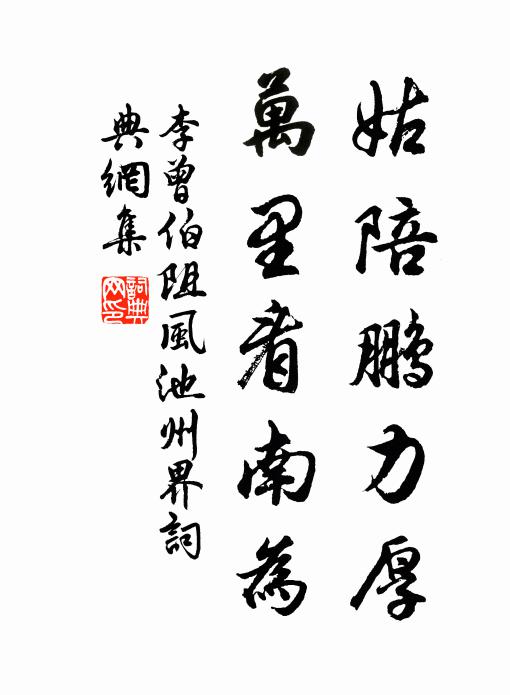 姑陪鵬力厚
萬里看南為
李曾伯阻風池州界詞
典網集
詞典
网印